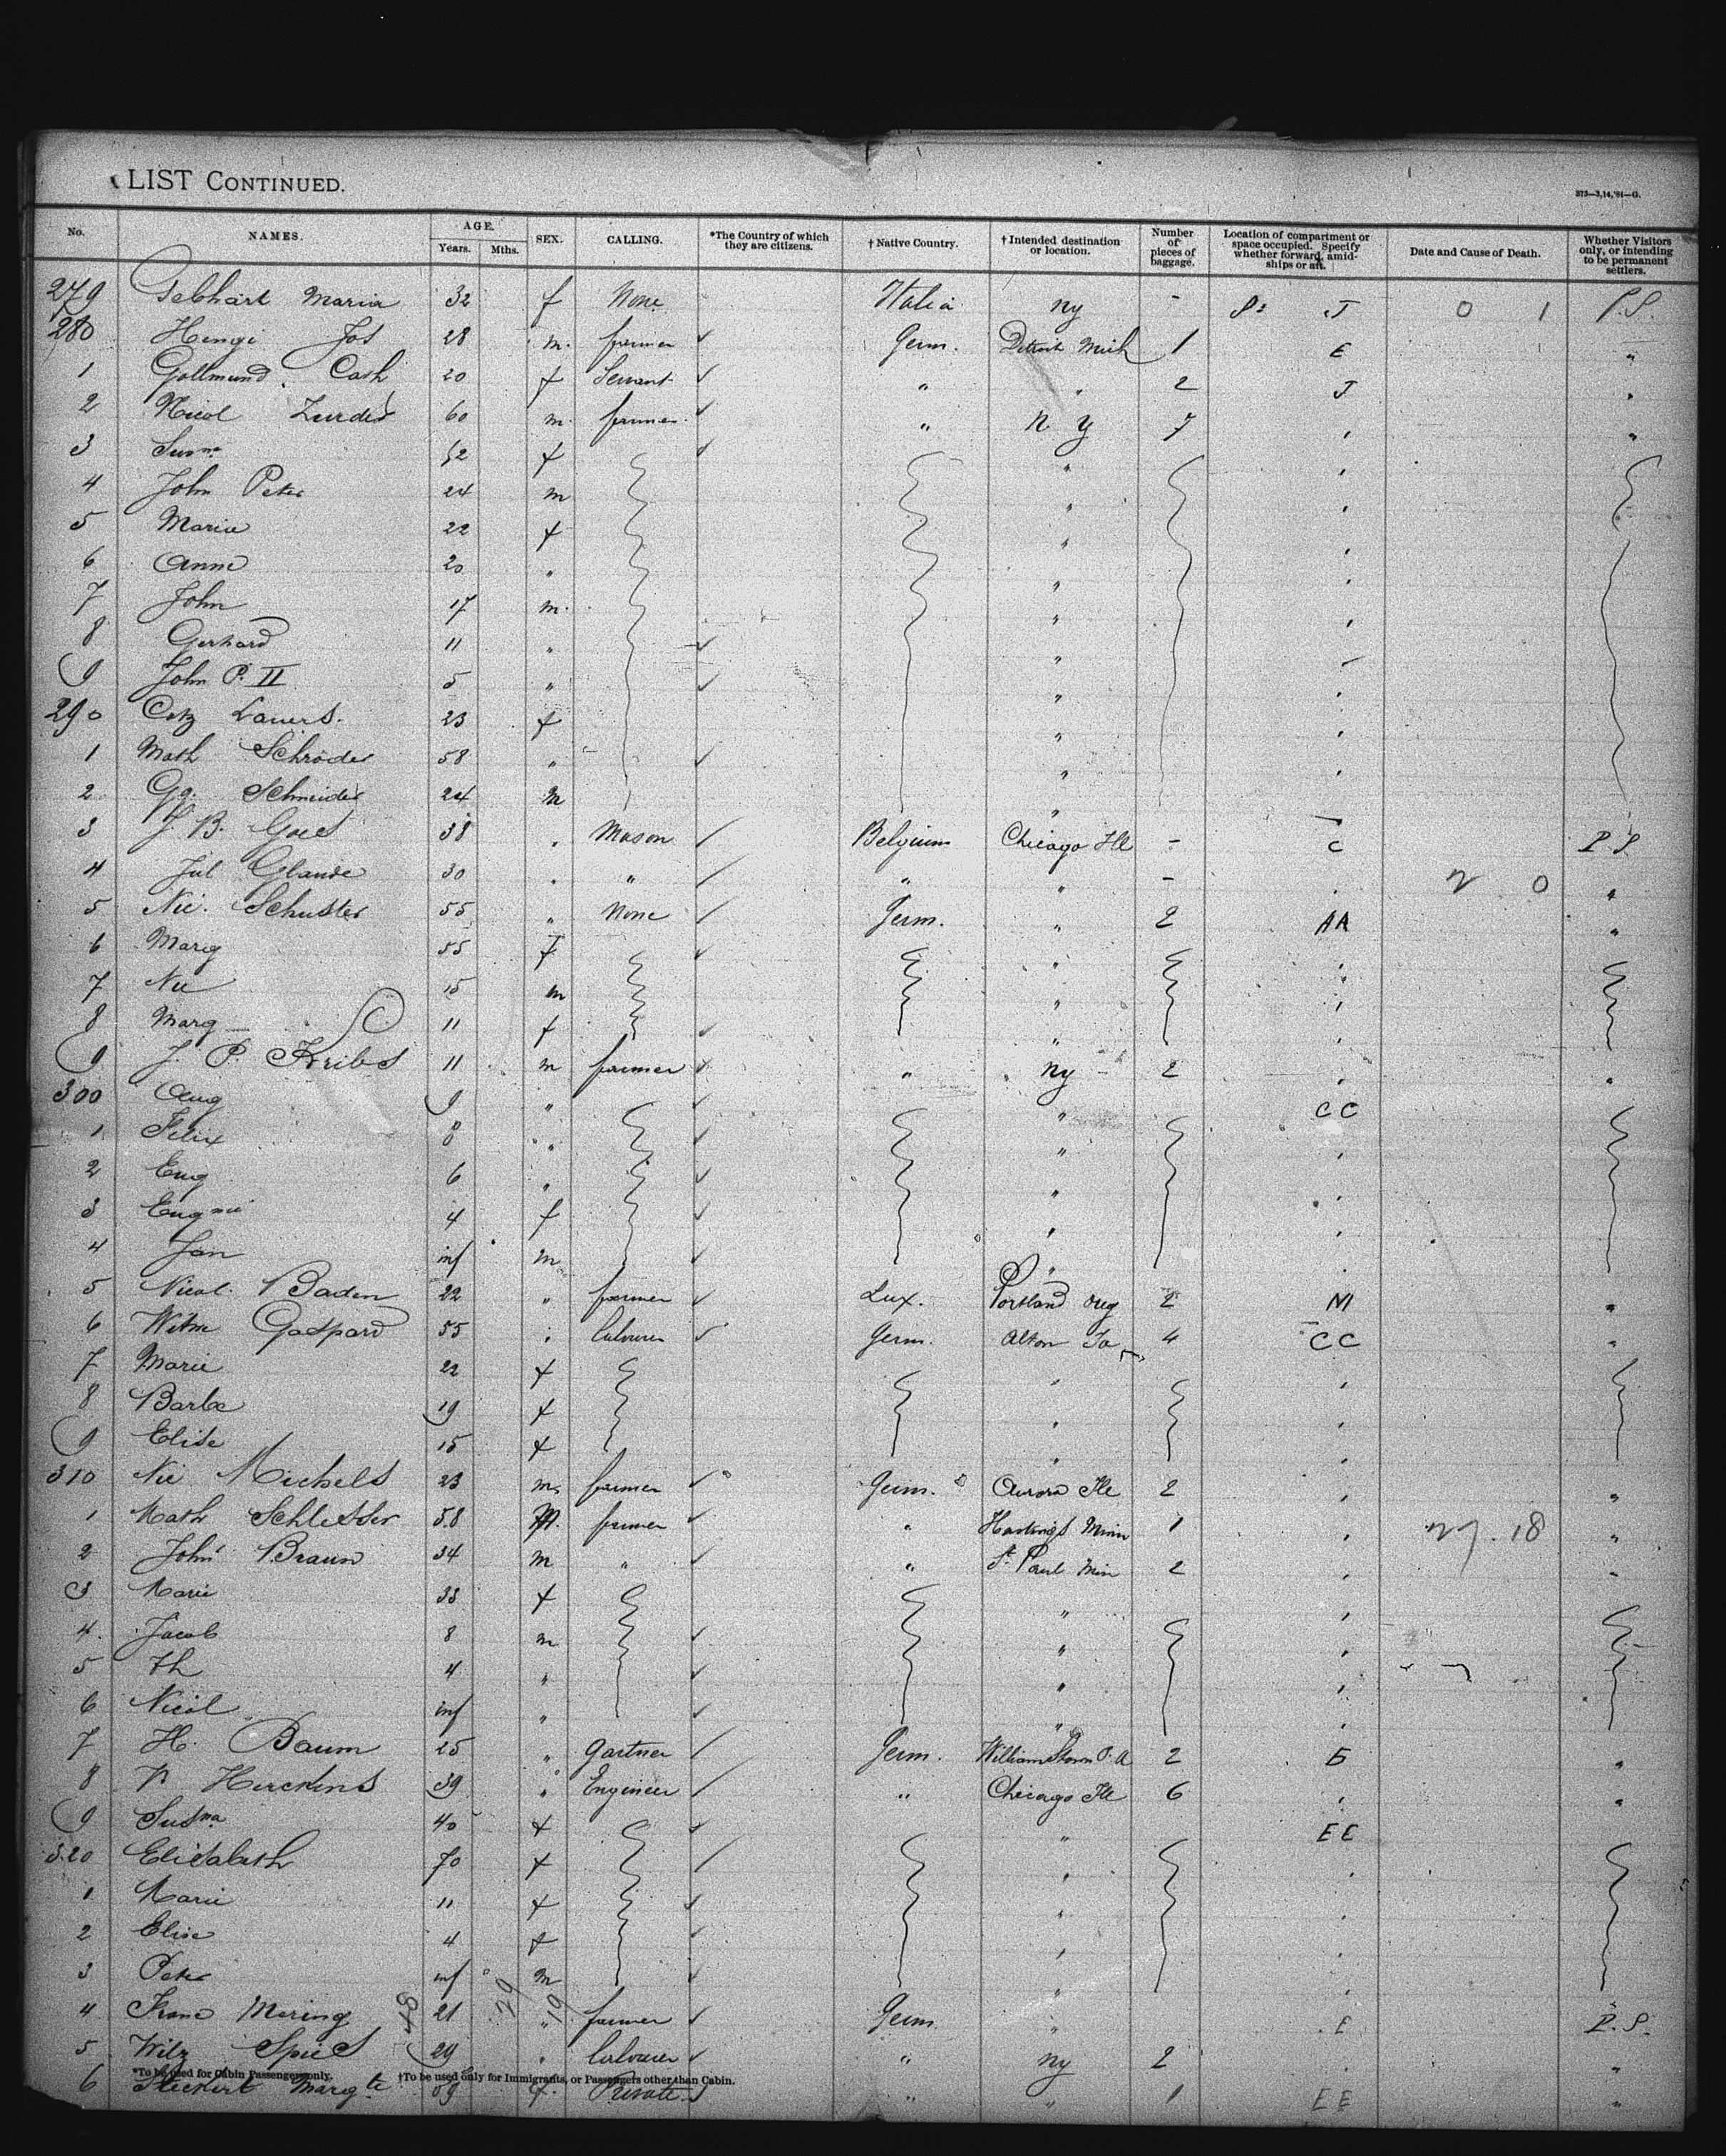 LIST CONTINUED.
373—3,14,'91—G.
No. NAMES. AGE. Years. Mths. SEX. CALLING. *The Country of which they are citizens. † Native Country. † Intended destination or location. Number of pieces of baggage. Location of compartment or space occupied. Specify whether forward, amidships or aft. Date and Cause of Death. Whether Visitors only, or intending to be permanent settlers.
279 Gebhart Maria 32 f None Italia ny - J 0 1 P.S.
280 Hengi Jos 28 m. farmer ✓ Germ. Detroit Mich 1 E "
1 Gollmund Cath 20 f Servant ✓ " " 2 J "
2 Nicol Zurdes 60 m. farmer ✓ " N Y 7 " "
3 Susna 52 f ✓ "
4 John Peter 24 m "
5 Maria 22 f "
6 Anna 20 " "
7 John 17 m. "
8 Gerhard 11 " ✓ "
9 John P. II 5 " ✓ "
290 Cath Lauers. 23 f "
1 Math Schroder 58 " ✓ "
2 Gg. Schneider 24 M "
3 J. B. Goes 38 " Mason ✓ Belgium Chicago Ill - C P S
4 Jul Glande 30 " " ✓ " " - " 2 0 "
5 Nic. Schuster 55 " None ✓ Germ. " 2 AA "
6 Marg 55 f ✓ "
7 Nic 15 m "
8 Marg 11 f ✓ "
9 J. P. Kribs 11 m farmer ✓ " ny 2 " "
300 Aug 9 " ✓ " CC
1 Felix 8 " ✓ "
2 Eug 6 " ✓ "
3 Eugnie 4 f ✓ "
4 Jan inf m ✓ "
5 Nicol. Baden 22 " farmer ✓ Lux. Portland Oreg 2 M "
6 Witm Gaspard 55 " labourer ✓ Germ. Alton Ia 4 CC "
7 Marie 22 f "
8 Barbe 19 f "
9 Elise 15 f "
310 Nic Michels 23 m. farmer ✓ Germ. Aurora Ill 2 " "
1 Math Schlesser 58 M. farmer ✓ " Hastings Minn 1 " 27.18 "
2 John Braun 34 m " ✓ " St Paul Min 2 " "
3 Marie 33 f "
4 Jacob 8 m ✓ "
5 Th 4 " ✓ "
6 Nicol inf " ✓ "
7 H. Baum 25 " Gartner ✓ Germ. Williamstown P.A 2 E "
8 N Herckens 39 " Engineer ✓ " Chicago Ill 6 " "
9 Susna 40 f ✓ " EE
320 Elisabeth 70 f ✓ "
1 Marie 11 f ✓ "
2 Elise 4 f ✓ "
3 Peter inf m ✓ "
4 Franc Mering 21 " farmer ✓ Germ " E P.S.
5 Witz Spies 29 " labourer ✓ " ny 2 "
*To be used for Cabin Passengers only. †To be used only for Immigrants, or Passengers other than Cabin.
6 Steckert Margte 59 f. Private ✓ " " 1 EE "